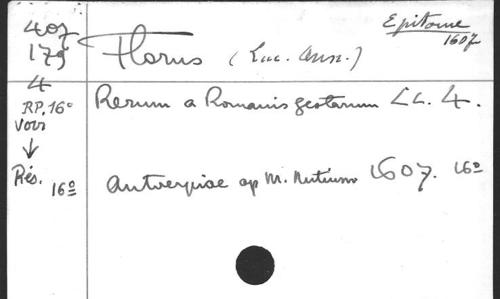 407
179
Florus (Luc. Ann.)
Epitome
1607
4
RP. 16°
Voir
↓
Rés. 16º
Rerum a Romanis gestarum LL. 4.
Antverpiae ap M. Nutium 1607. 16º